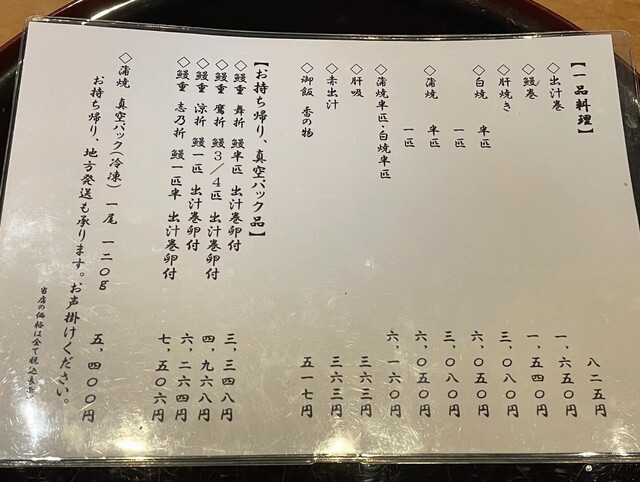 【一品料理】
◇出汁巻 八二五円
◇鰻巻 一,六五〇円
◇肝焼き 一,五四〇円
◇白焼 半匹 三,〇八〇円
一匹 六,〇五〇円
◇蒲焼 半匹 三,〇八〇円
一匹 六,〇五〇円
◇蒲焼半匹・白焼半匹 六,一六〇円
◇肝吸 三六三円
◇赤出汁 三六三円
◇御飯 香の物 五一七円
【お持ち帰り、真空パック品】
◇鰻重 舞折 鰻半匹 出汁巻卵付 三,三四八円
◇鰻重 鷹折 鰻3/4匹 出汁巻卵付 四,九六八円
◇鰻重 涼折 鰻一匹 出汁巻卵付 六,二六四円
◇鰻重 志乃折 鰻一匹半 出汁巻卵付 七,五〇六円
◇蒲焼 真空パック(冷凍) 一尾 一二〇g 五,四〇〇円
お持ち帰り、地方発送も承ります。お声掛けください。
当店の価格は全て税込表示